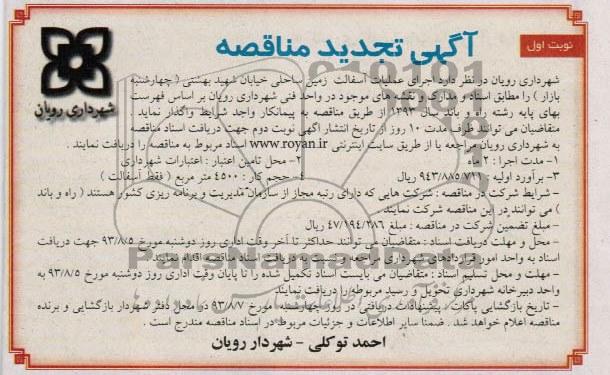 نوبت اول
آگهی تجدید مناقصه
شهرداری رویان
شهرداری رویان در نظر دارد اجرای عملیات آسفالت زمین ساحلی خیابان شهید بهشتی ( چهارشنبه
بازار ) را مطابق اسناد و مدارک و نقشه های موجود در واحد فنی شهرداری رویان بر اساس فهرست
بهای پایه رشته راه و باند سال ۱۳۹۳ از طریق مناقصه به پیمانکار واجد شرایط واگذار نماید .
متقاضیان می توانند ظرف مدت ۱۰ روز از تاریخ انتشار آگهی نوبت دوم جهت دریافت اسناد مناقصه
به شهرداری رویان مراجعه یا از طریق سایت اینترنتی www.royan.ir اسناد مربوط به مناقصه را دریافت نمایند .
۱- مدت اجرا : ۲ ماه ۲- محل تامین اعتبار : اعتبارات شهرداری
۳- برآورد اولیه : ۹۴۳/۸۸۵/۷۱۱ ریال ۴- حجم کار : ۴۵۰۰ متر مربع ( فقط آسفالت )
- شرایط شرکت در مناقصه : شرکت هایی که دارای رتبه مجاز از سازمان مدیریت و برنامه ریزی کشور هستند ( راه و باند
) می توانند در این مناقصه شرکت نمایند .
- مبلغ تضمین شرکت در مناقصه : مبلغ ۴۷/۱۹۴/۲۸۶ ریال
- محل و مهلت دریافت اسناد : متقاضیان می توانند حداکثر تا آخر وقت اداری روز دوشنبه مورخ ۹۳/۸/۵ جهت دریافت
اسناد به واحد امور قراردادهای شهرداری مراجعه و نسبت به دریافت اسناد مناقصه اقدام نمایند .
- مهلت و محل تسلیم اسناد : متقاضیان می بایست اسناد تکمیل شده را تا پایان وقت اداری روز دوشنبه مورخ ۹۳/۸/۵ به
واحد دبیرخانه شهرداری تحویل و رسید مربوطه را دریافت نمایند
- تاریخ بازگشایی پاکات : پیشنهادات دریافتی در روز چهارشنبه مورخ ۹۳/۸/۷ در محل دفتر شهردار بازگشایی و برنده
مناقصه اعلام خواهد شد . ضمنا سایر اطلاعات و جزئیات مربوط در اسناد مناقصه مندرج است .
احمد توکلی - شهردار رویان